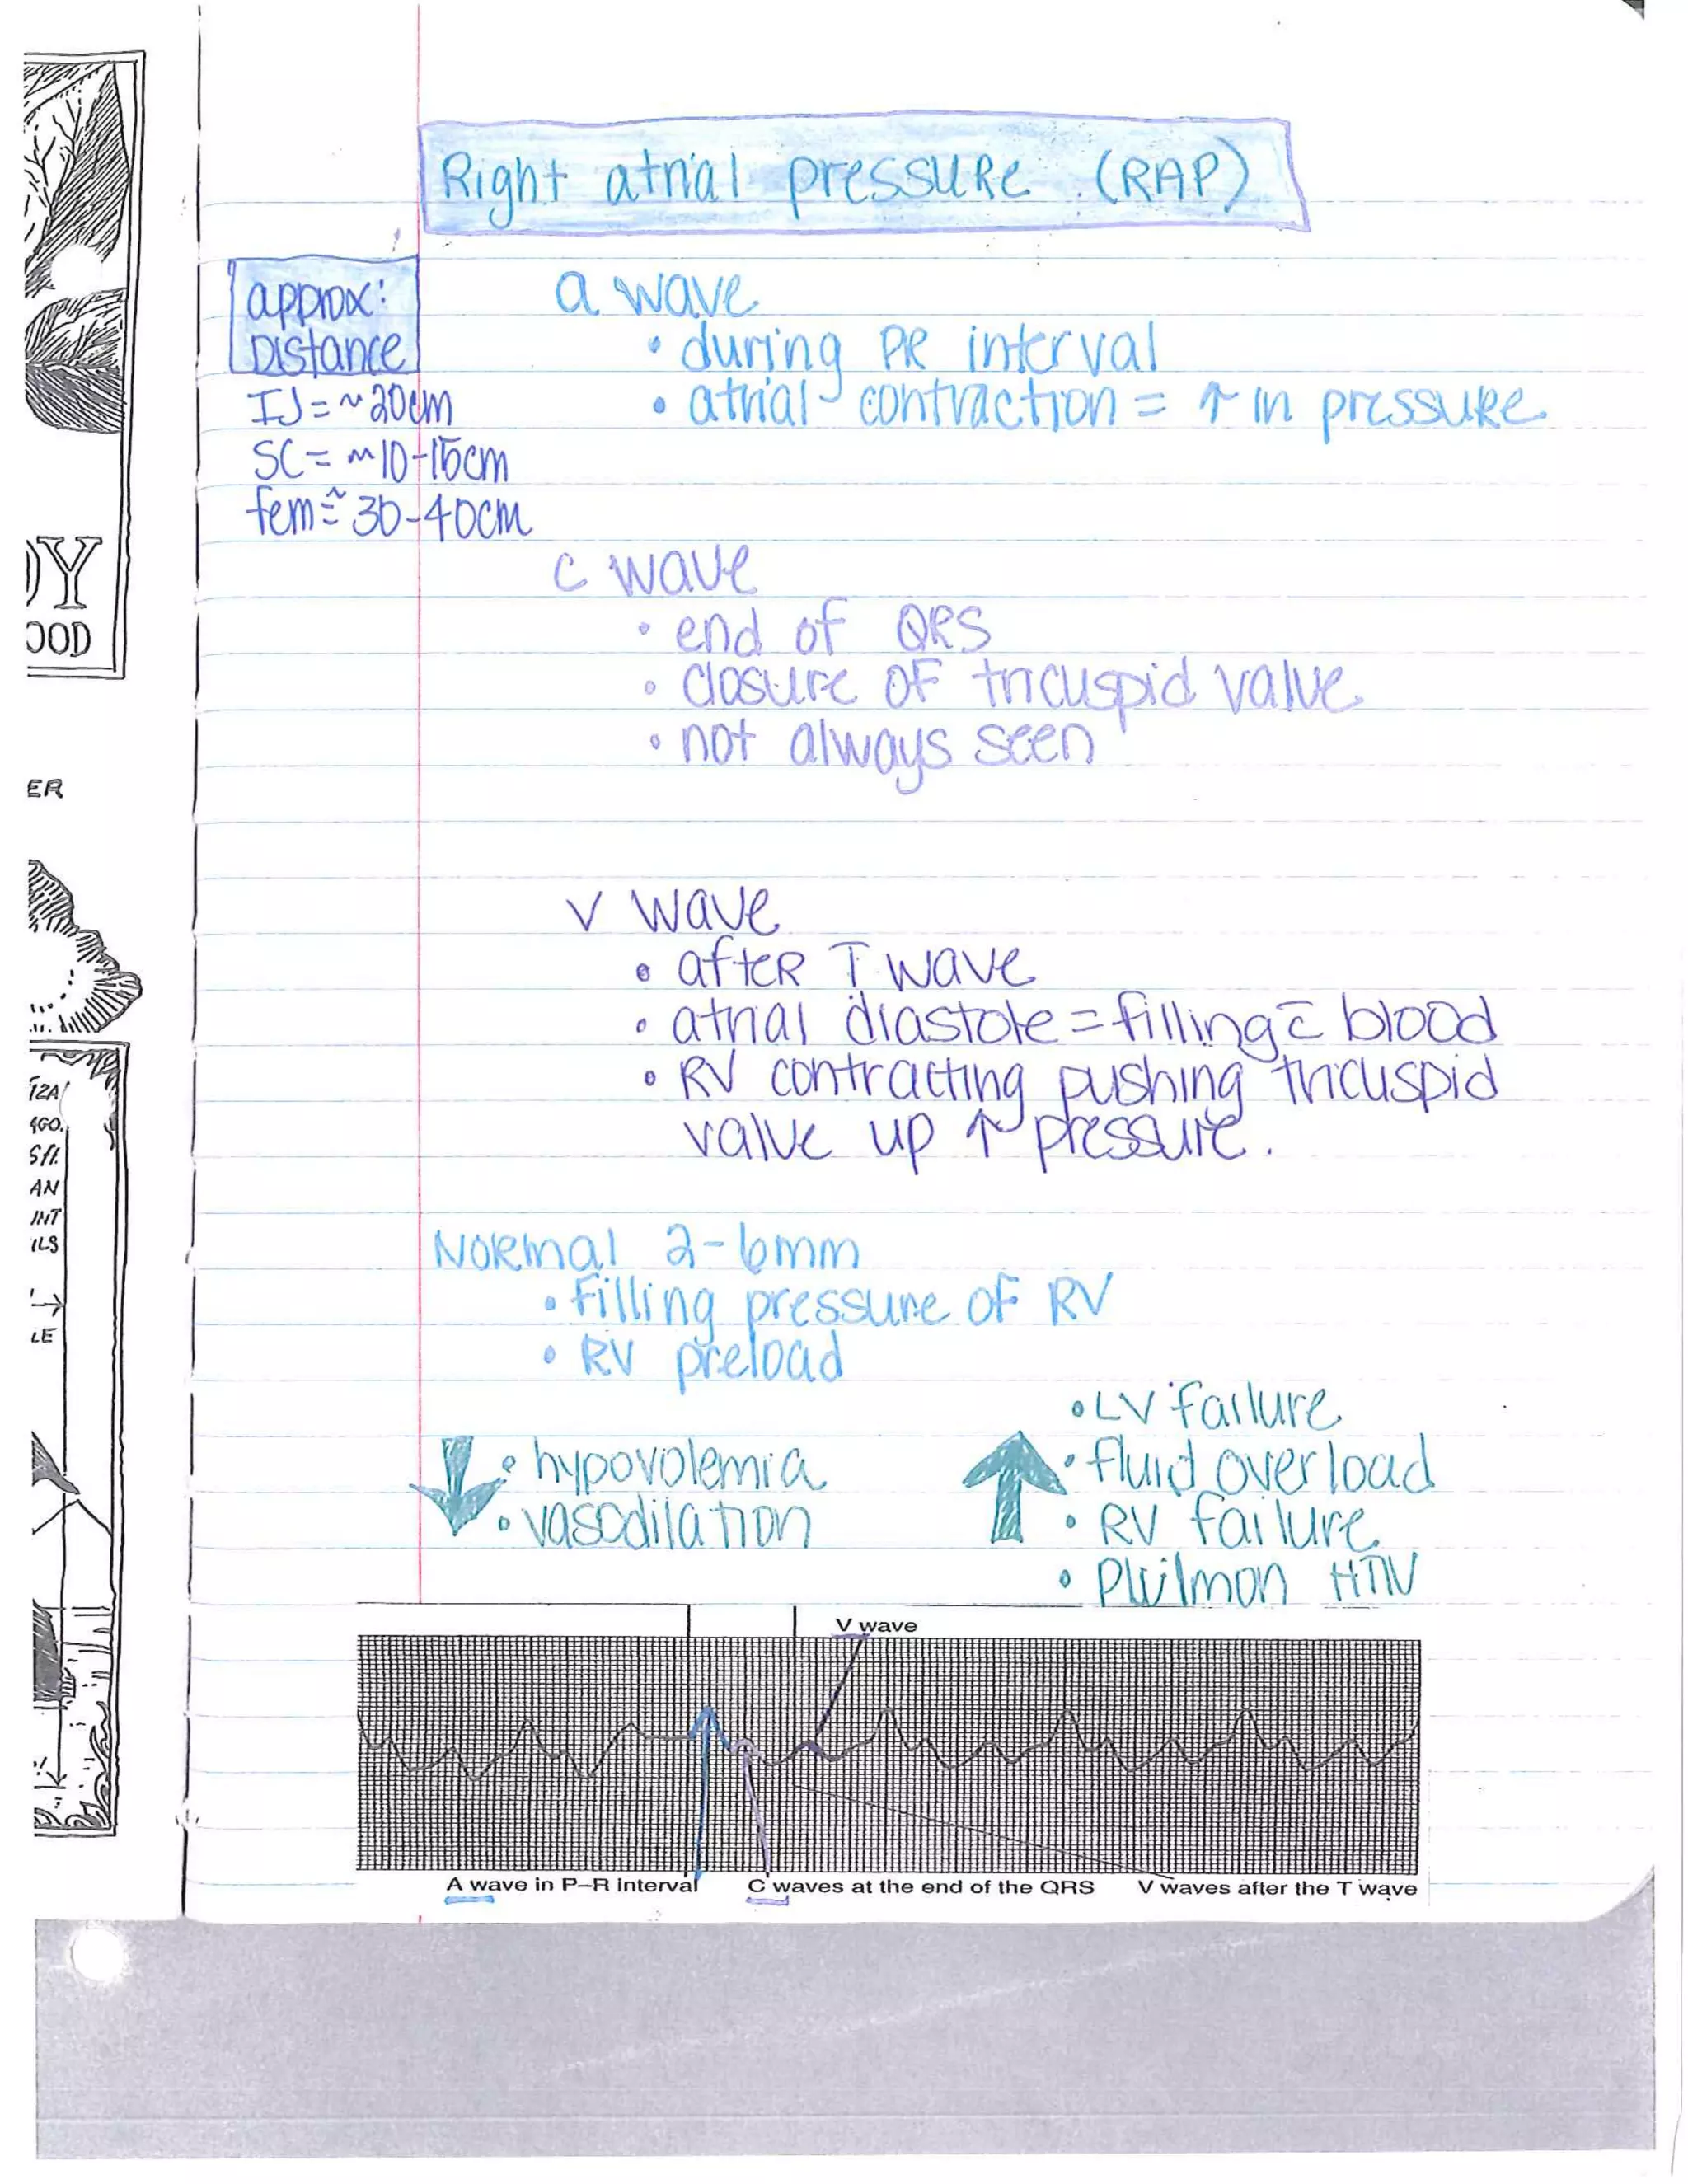 Right atrial pressure (RAP)
approx:
Distance
IJ = ~20cm
SC = ~10-15cm
fem = ~30-40cm
a wave
• during PR interval
• atrial contraction = ↑ in pressure
c wave
• end of QRS
• closure of tricuspid valve
• not always seen
V wave
• after T wave
• atrial diastole = filling c̄ blood
• RV contracting pushing tricuspid
valve up ↑ pressure.
Normal 2-6mm
• filling pressure of RV
• RV preload
↓ • hypovolemia
• vasodilation
• LV failure
↑ • fluid overload
• RV failure
• Pulmon HTN
V wave
A wave in P–R interval
C waves at the end of the QRS
V waves after the T wave
DY
OOD
ER
AN
INT
ILS
LE